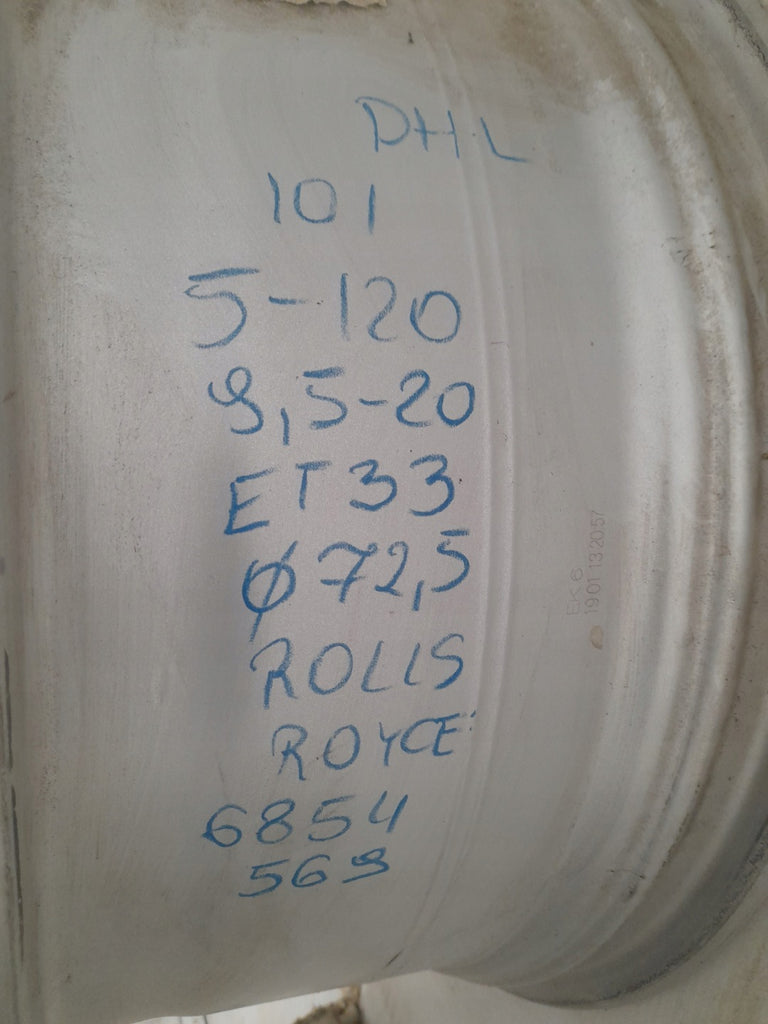 DHL
101
5-120
9,5-20
ET33
Ø72,5
ROLLS
ROYCE
6854
569
EK 6
19 01 13 20 57